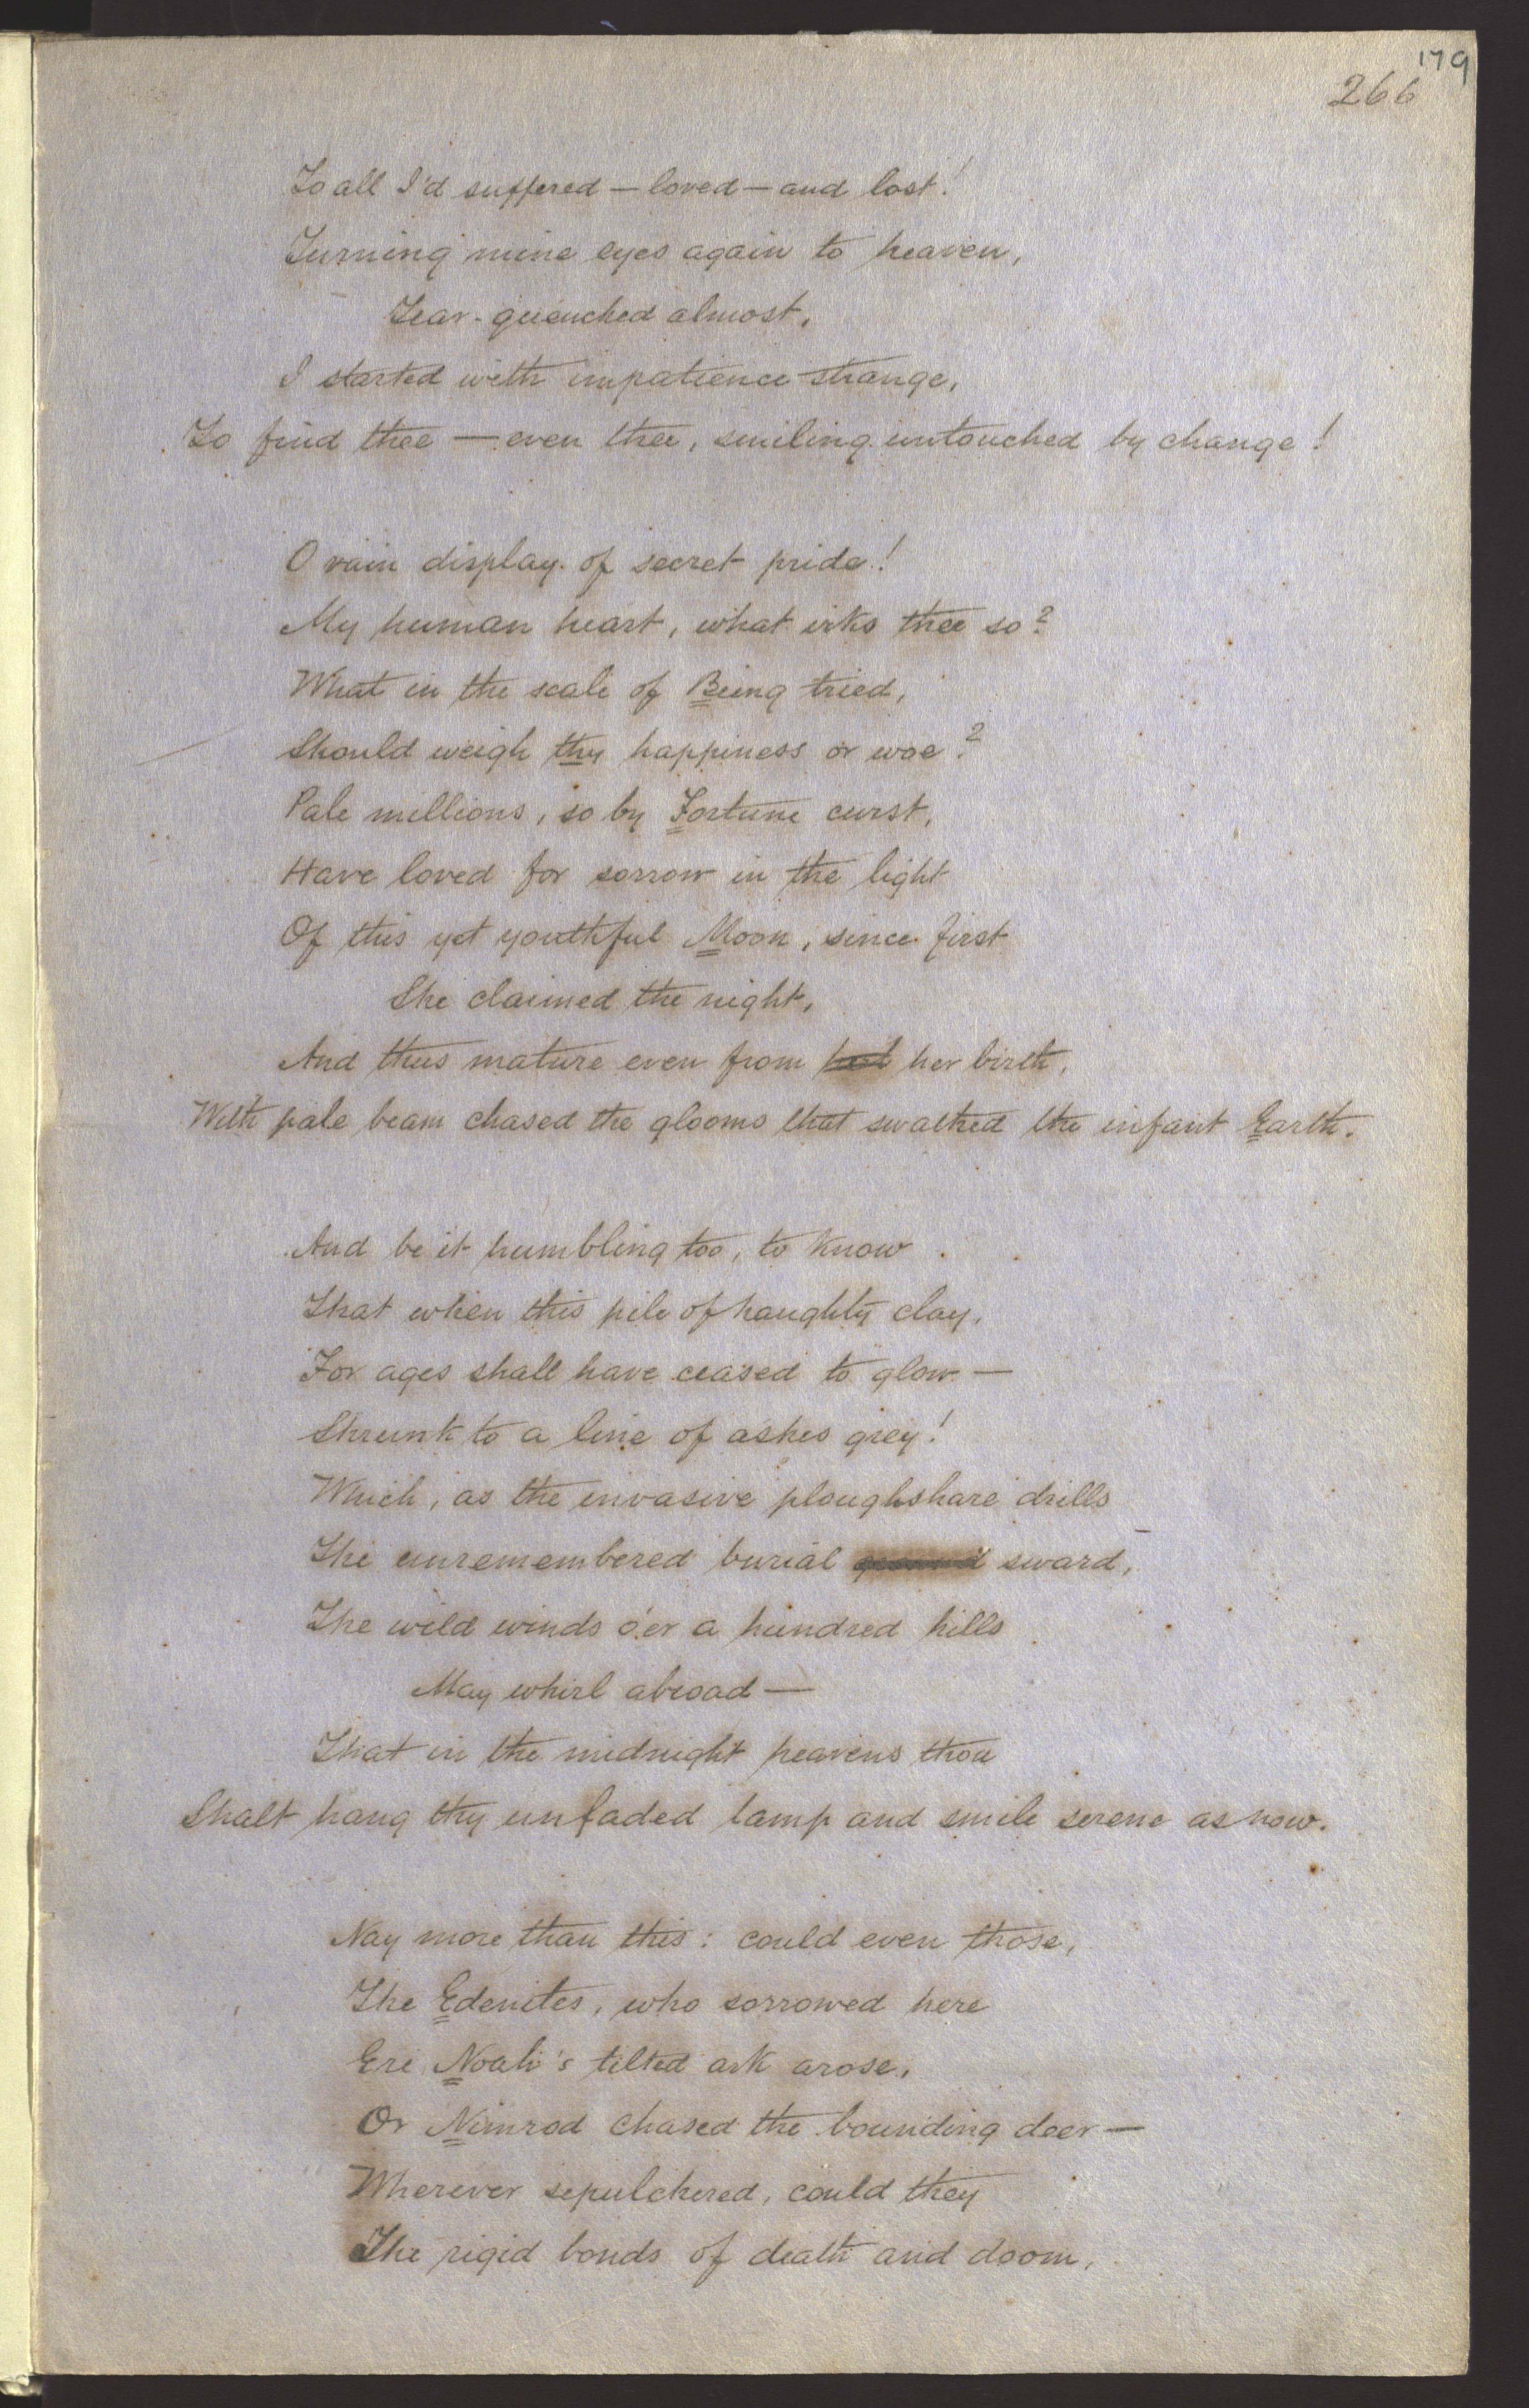 179
266
To all I'd suffered — loved — and lost!
Turning mine eyes again to heaven,
Tear-quenched almost,
I started with impatience strange,
To find thee — even thee, smiling untouched by change!
O vain display of secret pride!
My human heart, what irks thee so?
What in the scale of Being tried,
Should weigh thy happiness or woe?
Pale millions, so by Fortune curst,
Have loved for sorrow in the light
Of this yet youthful Moon, since first
She claimed the night,
And thus mature even from her birth,
With pale beam chased the glooms that swathed the infant Earth.
And be it humbling too, to know
That when this pile of haughty clay,
For ages shall have ceased to glow —
Shrunk to a line of ashes grey!
Which, as the invasive ploughshare drills
The unremembered burial ground sward,
The wild winds o'er a hundred hills
May whirl abroad —
That in the midnight heavens thou
Shalt hang thy unfaded lamp and smile serene as now.
Nay more than this: could even those,
The Edenites, who sorrowed here
Ere Noah's tilted ark arose,
Or Nimrod chased the bounding deer —
Wherever sepulchered, could they
The rigid bonds of death and doom,